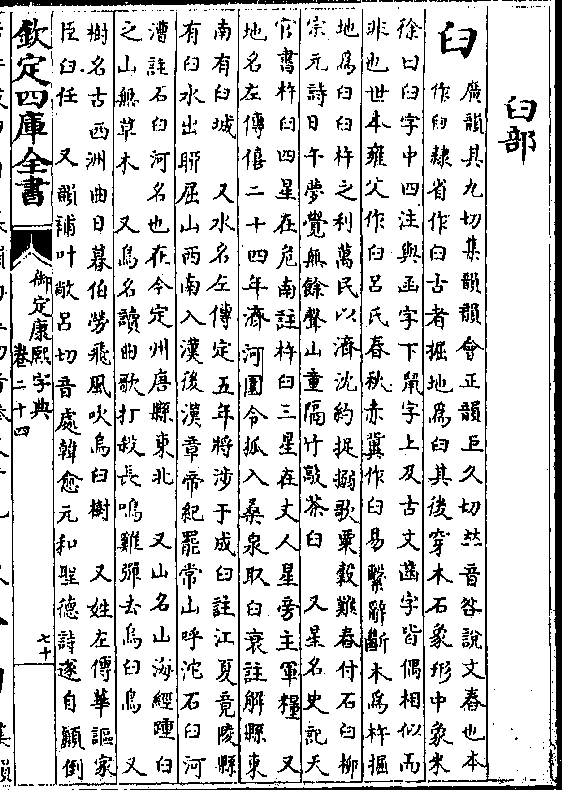 臼部
臼
廣韻其九切集韻韻會正韻巨久切𠀤音咎說文舂也本
作臼隸省作臼古者掘地爲臼其後穿木石象形中象米
徐曰臼字中四注與凾字下鼠字上及古文齒字皆偶相似而
非也世本雍父作臼呂氏春秋赤冀作臼易繫辭斷木爲杵掘
地爲臼臼杵之利萬民以濟沈約捉搦歌粟穀難舂付石臼柳
宗元詩日午夢覺無餘聲山童隔竹敲茶臼　又星名史記天
官書杵臼四星在危南註杵臼三星在丈人星旁主軍糧　又
地名左傳僖二十四年濟河圍令狐入桑泉取臼衰註解縣東
南有臼城　又水名左傳定五年將涉于成臼註江夏竟陵縣
有臼水出聊屈山西南入漢後漢章帝紀罷常山呼沱石臼河
漕註石臼河名也在今定州唐縣東北　又山名山海經踵臼
之山無草木　又鳥名讀曲歌打殺長鳴雞彈去烏臼鳥　又
樹名古西洲曲日暮伯勞飛風吹烏臼樹　又姓左傳華謳家
臣臼任　又韻補叶敞呂切音處韓愈元和聖德詩遂自顛倒
欽定四庫全書
御定康熙字典
卷二十四
七十